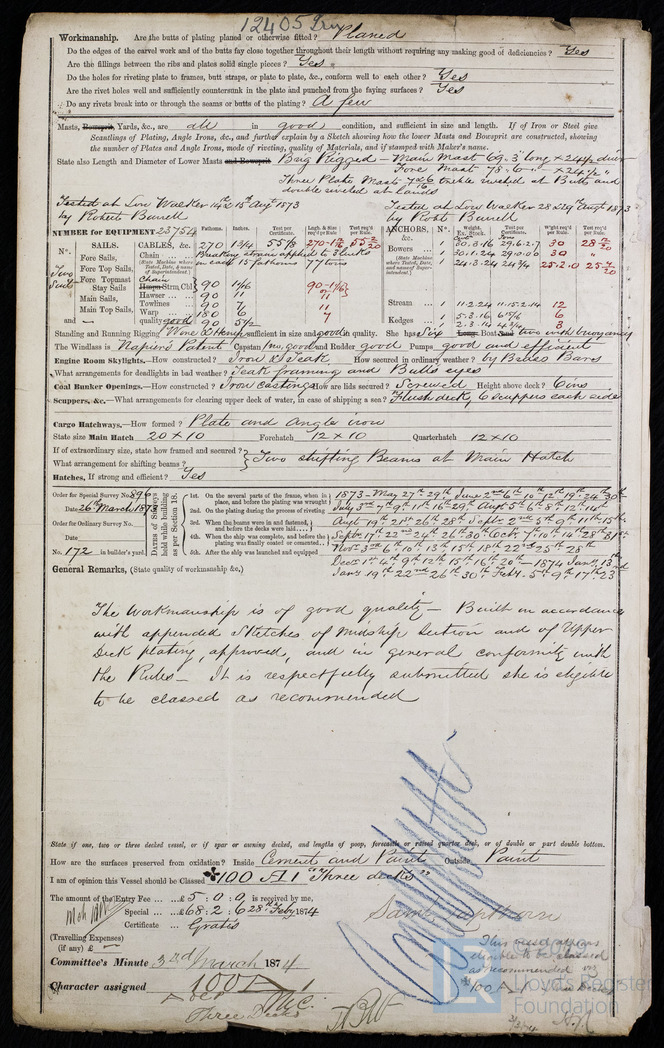 12405 Iron
Workmanship. Are the butts of plating planed or otherwise fitted? Planed
Do the edges of the carvel work and of the butts fay close together throughout their length without requiring any making good of deficiencies? Yes
Are the fillings between the ribs and plates solid single pieces? Yes
Do the holes for riveting plate to frames, butt straps, or plate to plate, &c., conform well to each other? Yes
Are the rivet holes well and sufficiently countersunk in the plate and punched from the faying surfaces? Yes
Do any rivets break into or through the seams or butts of the plating? A few
Masts, Bowsprit, Yards, &c., are all in good condition, and sufficient in size and length. If of Iron or Steel give
Scantlings of Plating, Angle Irons, &c., and further explain by a Sketch showing how the lower Masts and Bowsprit are constructed, showing
the number of Plates and Angle Irons, mode of riveting, quality of Materials, and if stamped with Maker's name.
State also Length and Diameter of Lower Masts and Bowsprit Brig Rigged - Main Mast 69.3 long × 24½ diam
Fore Mast 78.6 " × 24½ "
Three Plate Masts treble riveted at Butts and
double riveted at laps
Tested at Low Walker 14th & 15th Augt 1873
by Robert Burrell
Tested at Low Walker 28 & 29 Augt 1873
by Robt Burrell
NUMBER for EQUIPMENT 23754
Fathoms. Inches. Test per Certificate. Lngth. & Size req'd pr Rule. Test req'd per Rule.
ANCHORS, &c. Nº. Weight. Ex. Stock. Test per Certificate. W'ght req'd per Rule. Test req'd per Rule.
Nº. SAILS. CABLES, &c. 270 1 3/4 55 1/8 270-1
Two Suits
Fore Sails, Chain Breaking strain applied to 3 links
(State Machine where Tested, Date, & name of Superintendent.) in each 15 fathoms 77 tons
Fore Top Sails,
Fore Topmast Stay Sails Chain Strm, Cbl 90 1 1/16 90-1 1/16
Main Sails, Hawser 90 11 11
Main Top Sails, Towlines 90 7 7
Warp 180 6
and quality good 90 5½
Bowers 1 30.3.16 29.6.2.7 30 28
1 30.1.24 29.0.0.0 30 "
(State Machine where Tested, Date, and name of Superintendent.) 1 24.3.24 25.2.0 25
Stream 1 11.2.24 11.15.2.14 12
Kedges 1 5.3.16 6
1 2.3.14 3
Standing and Running Rigging Wire & Hemp sufficient in size and good in quality. She has Six Long Boat and two with buoyancy
The Windlass is Napier's Patent Capstan Iron, good and Rudder good Pumps good and efficient
Engine Room Skylights.—How constructed? Iron & Teak How secured in ordinary weather? by Brass Bars
What arrangements for deadlights in bad weather? Teak framing and Bulls eyes
Coal Bunker Openings.—How constructed? Iron castings How are lids secured? Screwed Height above deck? 6 ins
Scuppers, &c.—What arrangements for clearing upper deck of water, in case of shipping a sea? Flush deck, 6 scuppers each side
Cargo Hatchways.—How formed? Plate and angle iron
State size Main Hatch 20 × 10 Forehatch 12 × 10 Quarterhatch 12 × 10
If of extraordinary size, state how framed and secured?
What arrangement for shifting beams? Two shifting Beams at Main Hatch
Hatches, If strong and efficient? Yes
Order for Special Survey No. 896
Date 26th March 1873
Order for Ordinary Survey No.
Date
No. 172 in builder's yard.
DATES of Surveys held while building as per Section 18.
1st. On the several parts of the frame, when in place, and before the plating was wrought 1873 - May 27th 29th June 2nd 6th 10th 12th 19th 24th 30th
2nd. On the plating during the process of riveting July 3rd 7th 9th 11th 16th 29th Augt 5th 6th 8th 12th 14th
3rd. When the beams were in and fastened, and before the decks were laid.... Augt 19th 21st 26th 28th Septr 2nd 5th 9th 11th 15th
4th. When the ship was complete, and before the plating was finally coated or cemented.. Sept. 17th 22nd 24th 26th 30th Octr 7th 10th 14th 28th 31st
5th. After the ship was launched and equipped Novr 3rd 6th 10th 13th 15th 18th 22nd 25th 28th
Decr 1st 4th 9th 12th 15th 16th 20th - 1874 Jany 13th
Jany 19th 22nd 26th 30th Feby 5th 9th 17th 23rd
General Remarks, (State quality of workmanship &c.,)
The Workmanship is of good quality - Built in accordance
with appended Sketches of Midship Section and of Upper
Deck plating, approved, and in general conformity with
the Rules - It is respectfully submitted she is eligible
to be classed as recommended
State if one, two or three decked vessel, or if spar or awning decked, and lengths of poop, forecastle or raised quarter deck, or of double or part double bottom.
How are the surfaces preserved from oxidation? Inside Cement and Paint Outside Paint
I am of opinion this Vessel should be Classed 100 A1 "Three decks"
The amount of the Entry Fee ... £ 5 : 0 : 0 is received by me,
Special ... £ 68 : 2 : 6 28th Feby 1874
Certificate ... Gratis
(Travelling Expenses)
(if any) £ —
Committee's Minute 3rd March 1874
Character assigned 100 A 1
Three Decks
M.C.
This vessel appears
eligible to be classed
as recommended
100 A
3/3/74
Lloyd's Register
Foundation